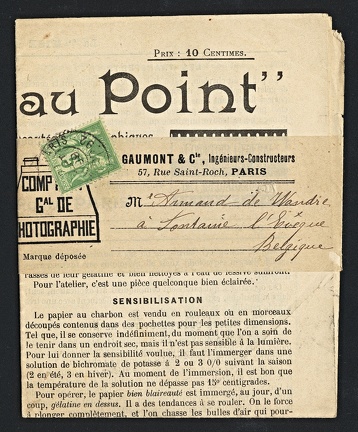 PRIX : 10 CENTIMES.
au Point"
GAUMONT & Cie, Ingénieurs-Constructeurs
57, Rue Saint-Roch, PARIS
COMP
GAL DE
HOTOGRAPHIE
Mr Armand de Wandre
à Fontaine l'Evêque
Belgique
Marque déposée
rasses de leur gélatine et bien nettoyés à l'eau de lessive
Pour l'atelier, c'est une pièce quelconque bien éclairée.
SENSIBILISATION
Le papier au charbon est vendu en rouleaux ou en morceaux
découpés contenus dans des pochettes pour les petites dimensions.
Tel que, il se conserve indéfiniment, du moment que l'on a soin de
le tenir dans un endroit sec, mais il n'est pas sensible à la lumière.
Pour lui donner la sensibilité voulue, il faut l'immerger dans une
solution de bichromate de potasse à 2 ou 3 0/0 suivant la saison
(2 en été, 3 en hiver). Au moment de l'immersion, il est bon que
la température de la solution ne dépasse pas 15° centigrades.
Pour opérer, le papier bien blaireauté est immergé, au jour, d'un
coup, gélatine en dessus. Il a des tendances à se rouler. On le force
à plonger complètement, et l'on chasse les bulles d'air qui pour-